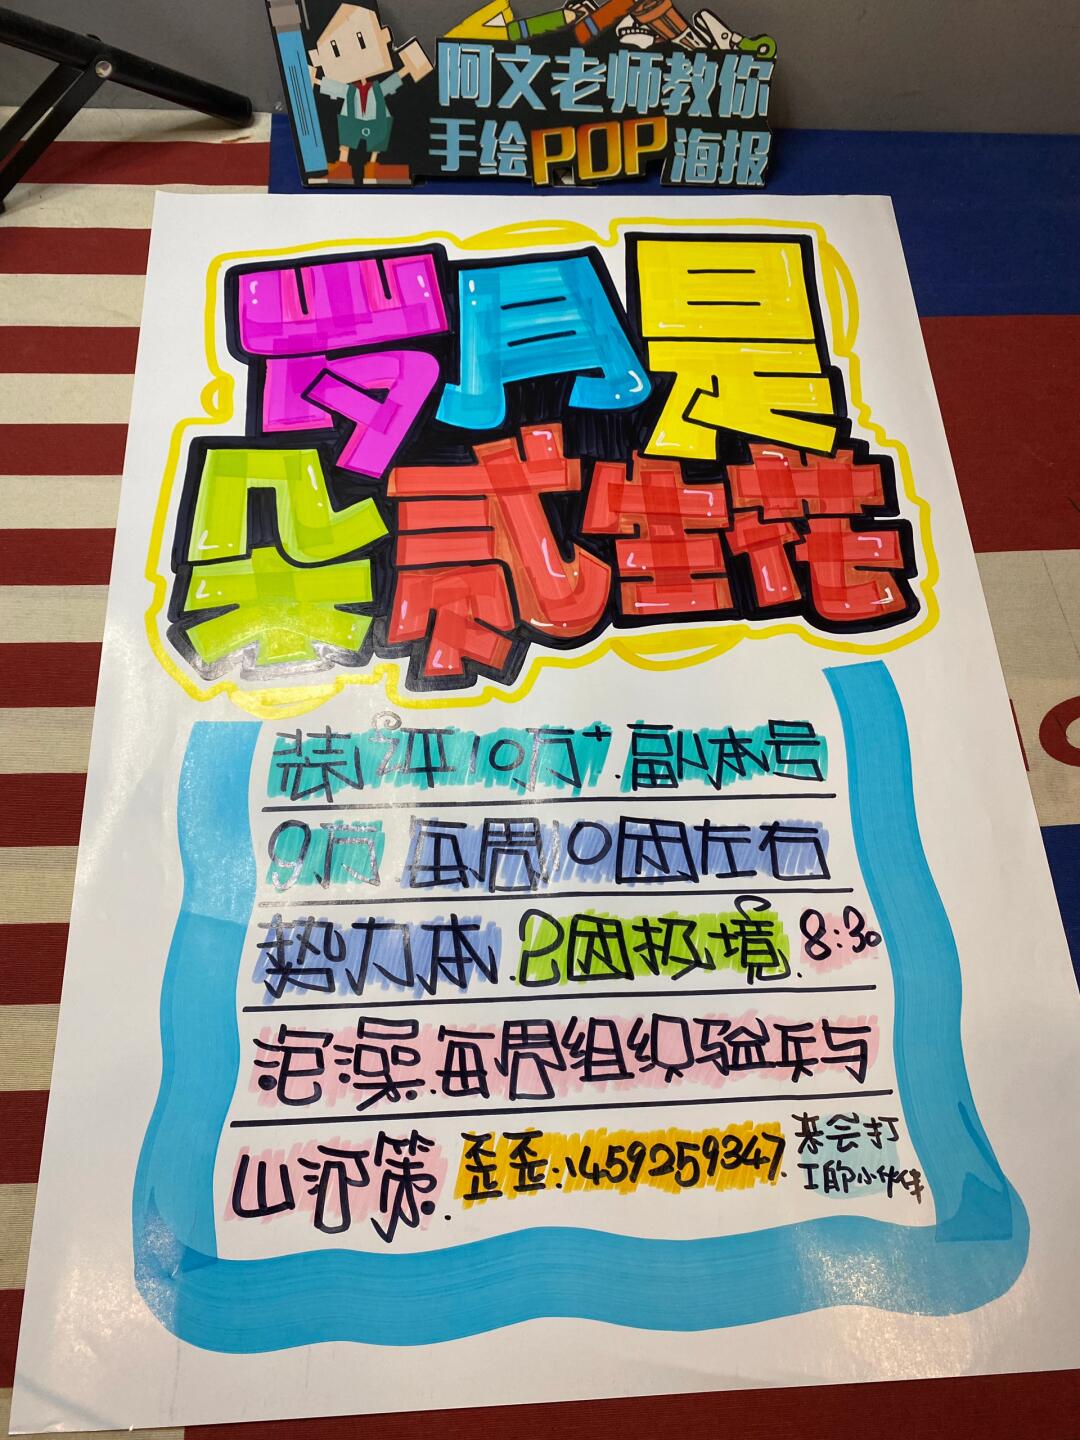 阿文老师教你
手绘POP海报
岁月是
朵贰生花
装评10万+.副本号
9万 每周10团左右
势力本.2团极境.8:30
泡澡.每周组织验兵与
山河策.歪歪:1459259347.来会打
工的小伙伴